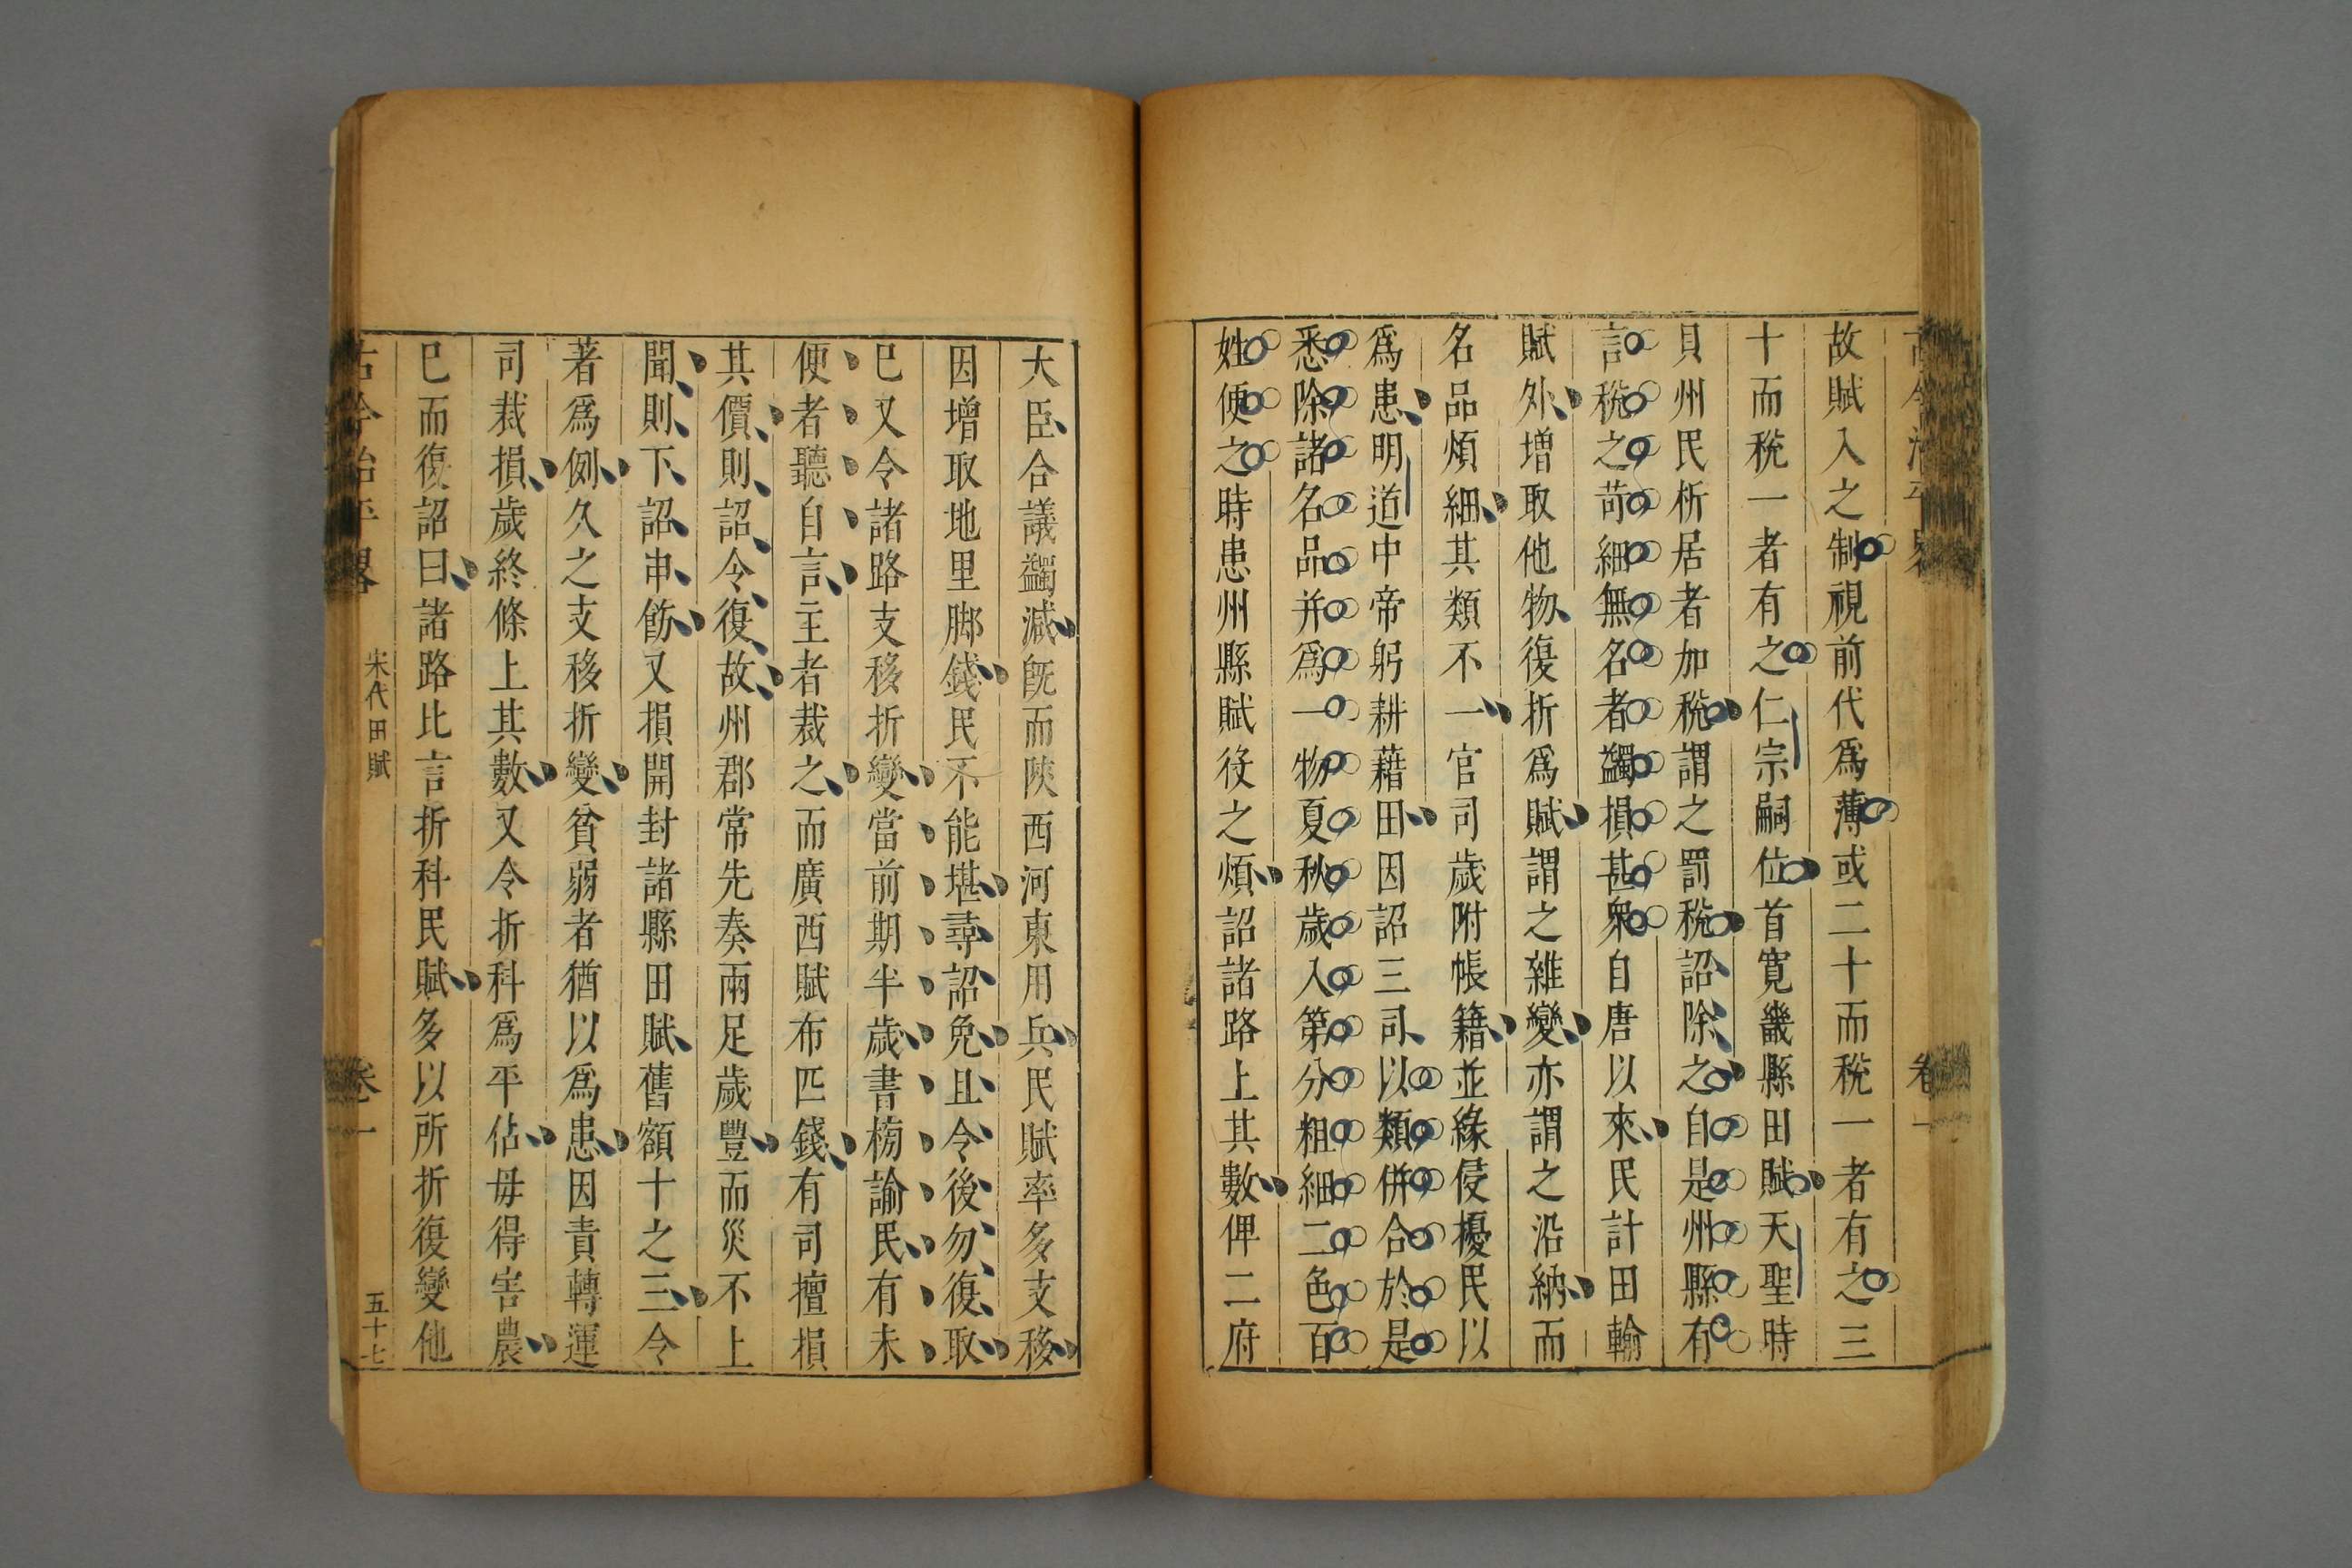 古今治平畧 卷一
故賦入之制視前代爲薄或二十而稅一者有之三
十而稅一者有之仁宗嗣位首寬畿縣田賦天聖時
貝州民析居者加稅謂之罰稅詔除之自是州縣有
言稅之苛細無名者蠲損甚衆自唐以來民計田輸
賦外增取他物復折爲賦謂之雜變亦謂之沿納而
名品煩細其類不一官司歲附帳籍並緣侵擾民以
爲患明道中帝躬耕藉田因詔三司以類併合於是
悉除諸名品并爲一物夏秋歲入第分粗細二色百
姓便之時患州縣賦役之煩詔諸路上其數俾二府
大臣合議蠲減旣而陝西河東用兵民賦率多支移
因增取地里脚錢民不能堪尋詔免且令後勿復取
已又令諸路支移折變當前期半歲書榜諭民有未
便者聽自言主者裁之而廣西賦布匹錢有司擅損
其價則詔令復故州郡常先奏雨足歲豐而災不上
聞則下詔申飭又損開封諸縣田賦舊額十之三令
著爲例久之支移折變貧弱者猶以爲患因責轉運
司裁損歲終條上其數又令折科爲平估毋得害農
已而復詔曰諸路比言折科民賦多以所折復變他
古今治平畧 宋代田賦 卷一 五十七